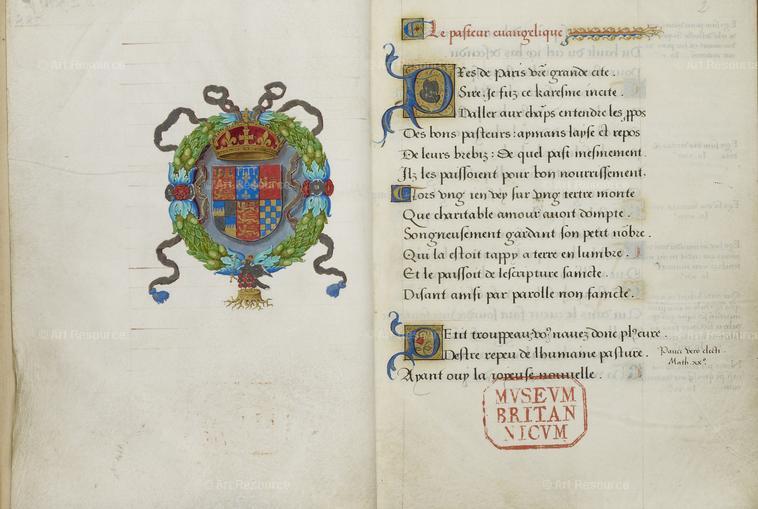 Le pasteur euangelique
Pres de Paris vre grande cite.
Sire, Je fuz ce karesme incite.
Daller aux chāps entendre les ppos
Des bons pasteurs: aymans layse et repos
De leurs brebiz: De quel past mesmement.
Ilz les paissoient pour bon nourrissement.
Lors vng ien vey sur vng tertre monte
Que charitable amour auoit dompte.
Songneusement gardant son petit nōbre.
Qui la estoit tappy a terre en lumbre.
Et le paissoit de lescripture saincte.
Disant ainsi par parolle non faincte.
Petit trouppeau vo9 nauez donc pl9 cure.
Destre repeu de lhumaine pasture.
Ayant ouy la ioyeuse nouuelle.
Pauci vero electi
Math. xx°.
MVSEVM
BRITAN
NICVM
© Art Resource
© Art Resource
© Art Resource
© Art Resource
© Art Resource
© Art Resource